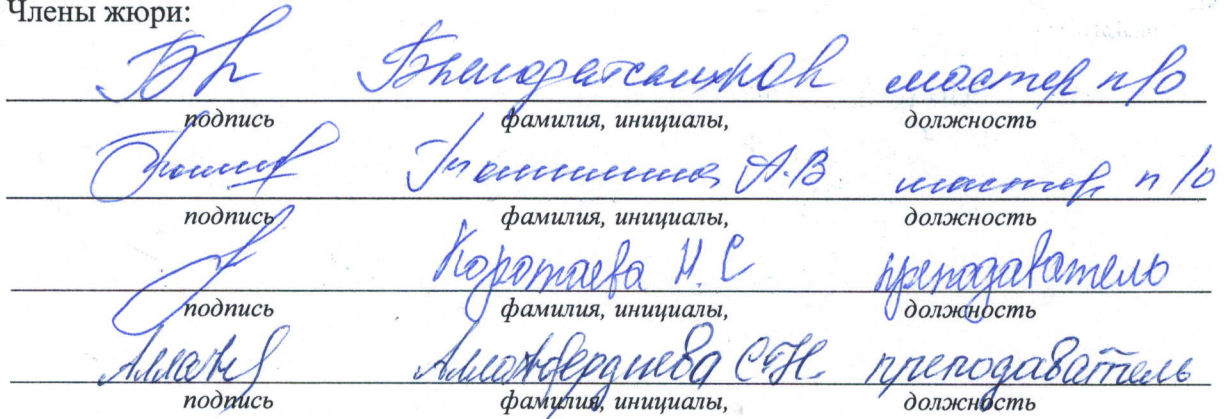 Члены жюри:
мастер п/о
подпись фамилия, инициалы, должность
А.В мастер п/о
подпись фамилия, инициалы, должность
Коротаева Н.С преподаватель
подпись фамилия, инициалы, должность
Аллахвердиева С.Н. преподаватель
подпись фамилия, инициалы, должность